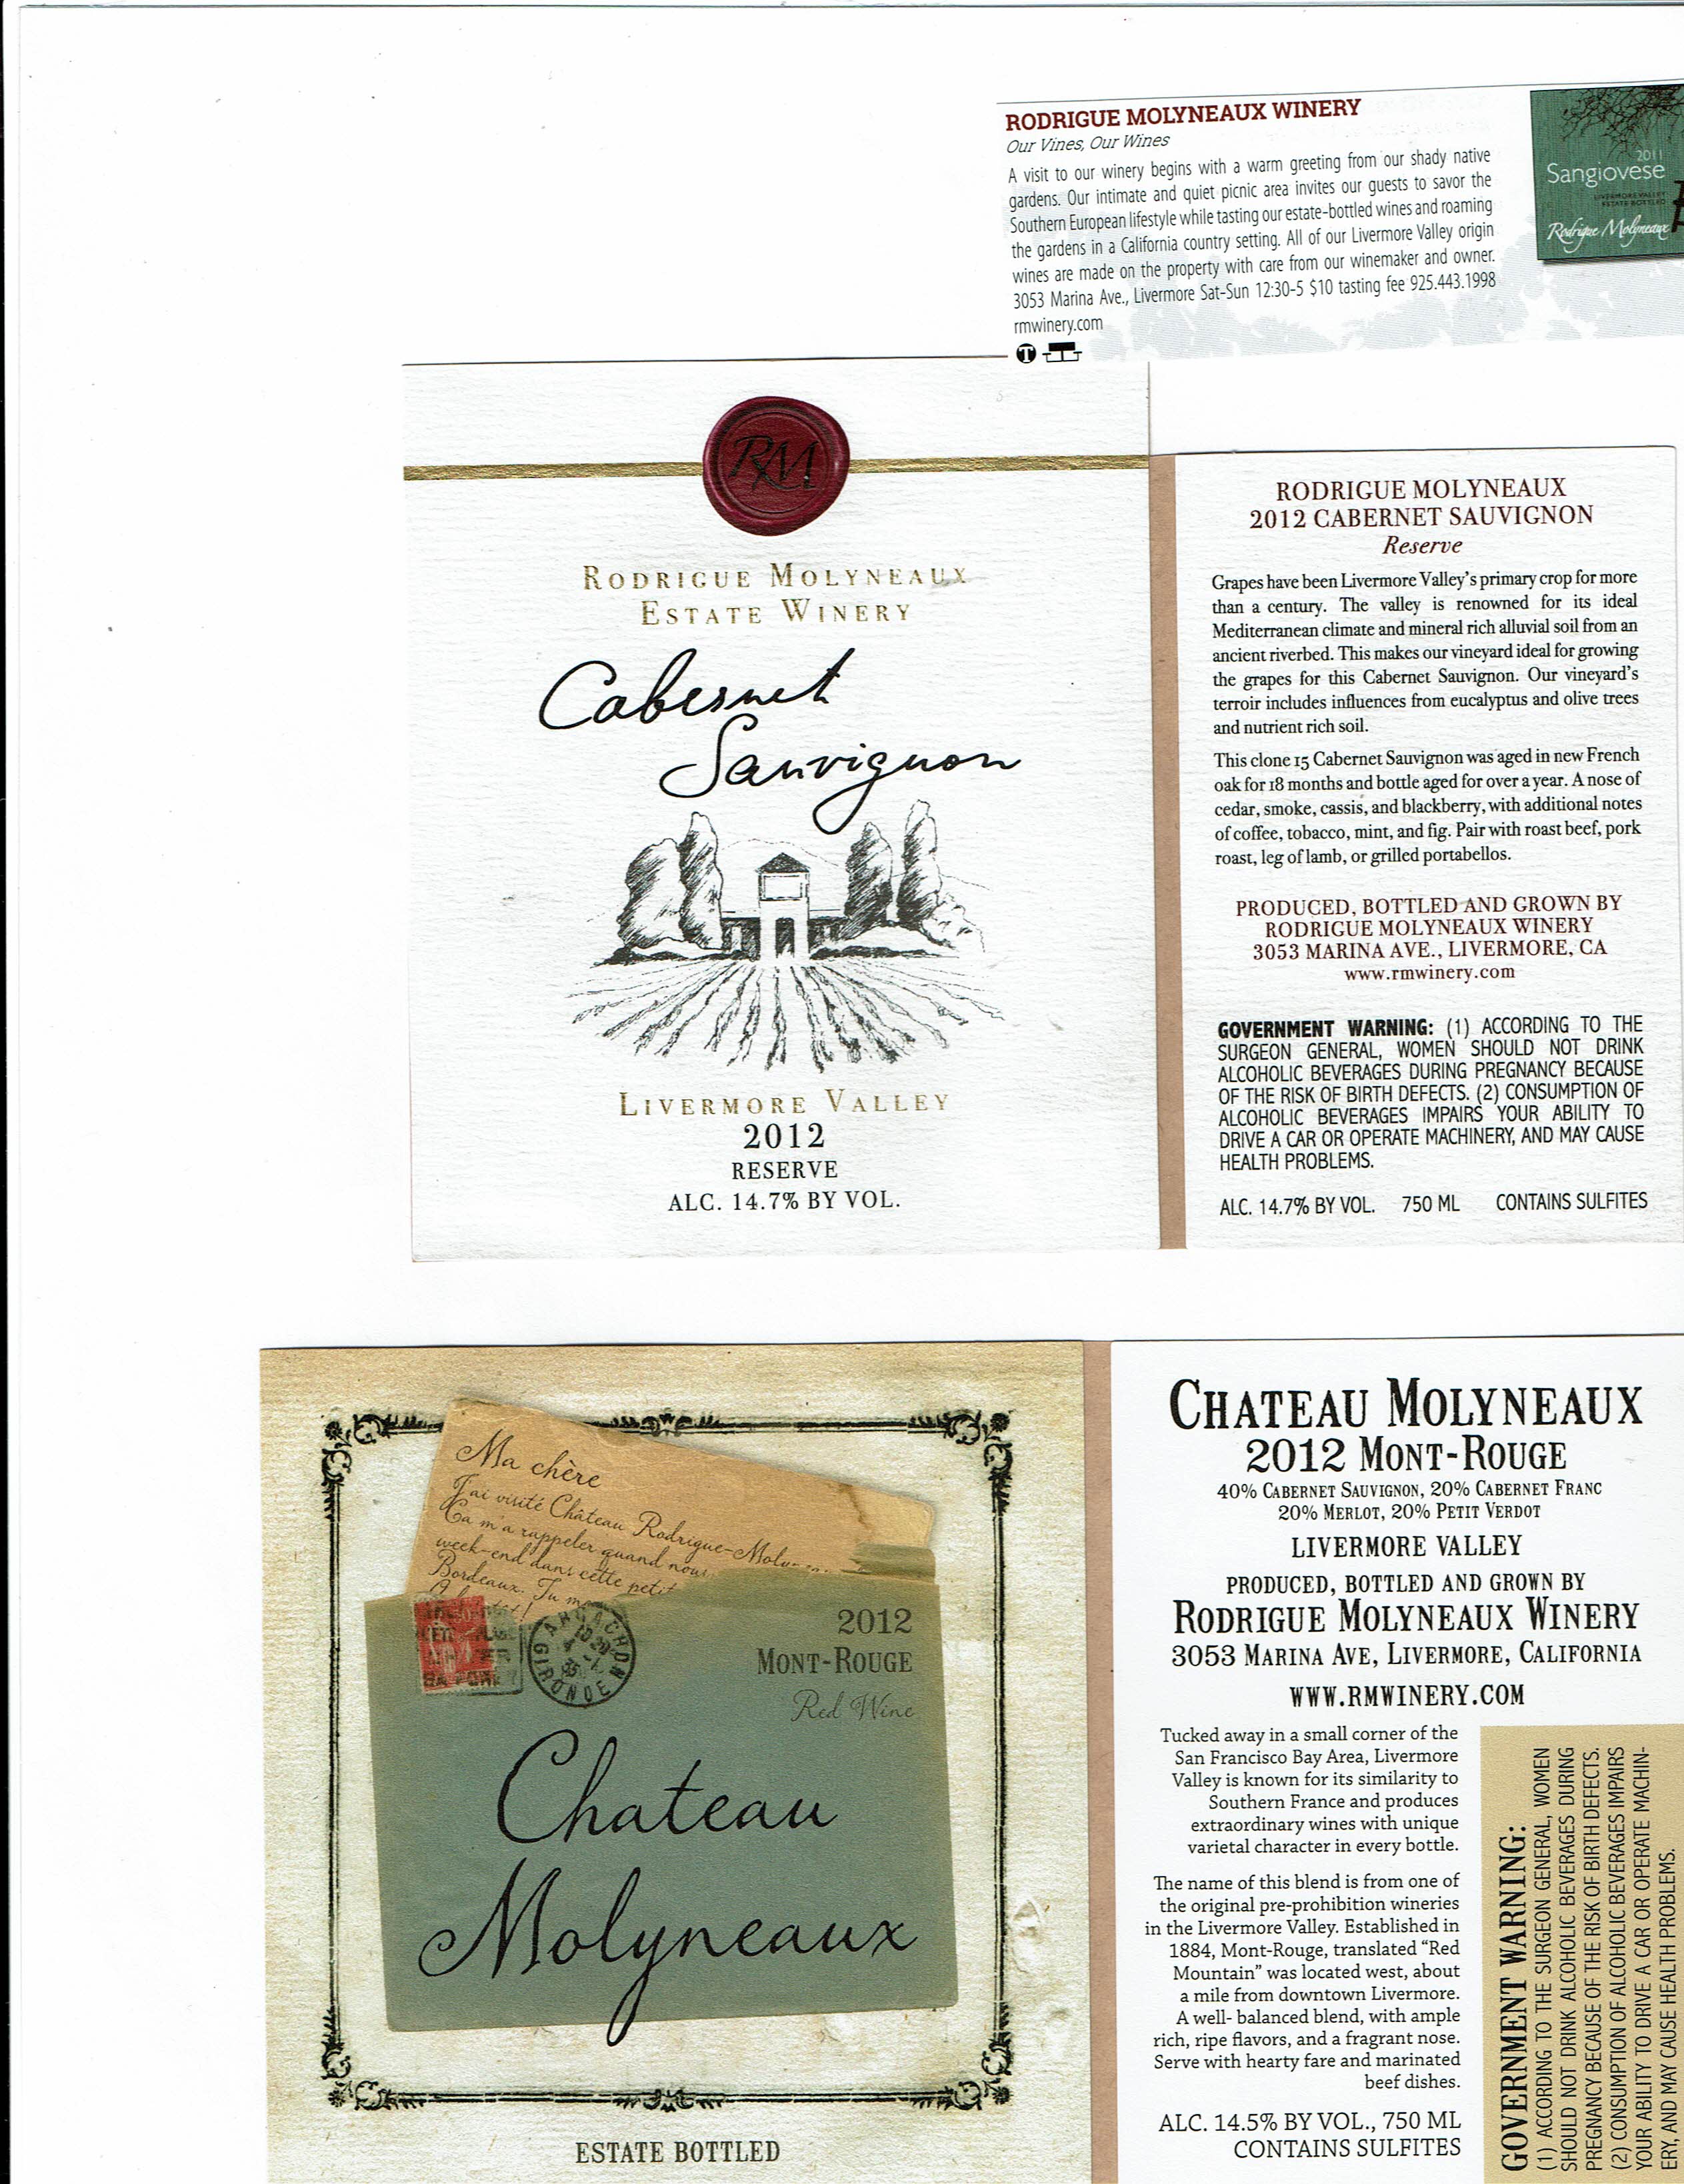 RODRIGUE MOLYNEAUX WINERY
Our Vines, Our Wines
A visit to our winery begins with a warm greeting from our shady native
gardens. Our intimate and quiet picnic area invites our guests to savor the
Southern European lifestyle while tasting our estate-bottled wines and roaming
the gardens in a California country setting. All of our Livermore Valley origin
wines are made on the property with care from our winemaker and owner.
3053 Marina Ave., Livermore Sat-Sun 12:30-5 $10 tasting fee 925.443.1998
rmwinery.com
T
2011
Sangiovese
LIVERMORE VALLEY
ESTATE BOTTLED
Rodrigue Molyneaux
RM
RODRIGUE MOLYNEAUX
ESTATE WINERY
Cabernet
Sauvignon
LIVERMORE VALLEY
2012
RESERVE
ALC. 14.7% BY VOL.
RODRIGUE MOLYNEAUX
2012 CABERNET SAUVIGNON
Reserve
Grapes have been Livermore Valley's primary crop for more
than a century. The valley is renowned for its ideal
Mediterranean climate and mineral rich alluvial soil from an
ancient riverbed. This makes our vineyard ideal for growing
the grapes for this Cabernet Sauvignon. Our vineyard's
terroir includes influences from eucalyptus and olive trees
and nutrient rich soil.
This clone 15 Cabernet Sauvignon was aged in new French
oak for 18 months and bottle aged for over a year. A nose of
cedar, smoke, cassis, and blackberry, with additional notes
of coffee, tobacco, mint, and fig. Pair with roast beef, pork
roast, leg of lamb, or grilled portabellos.
PRODUCED, BOTTLED AND GROWN BY
RODRIGUE MOLYNEAUX WINERY
3053 MARINA AVE., LIVERMORE, CA
www.rmwinery.com
GOVERNMENT WARNING: (1) ACCORDING TO THE
SURGEON GENERAL, WOMEN SHOULD NOT DRINK
ALCOHOLIC BEVERAGES DURING PREGNANCY BECAUSE
OF THE RISK OF BIRTH DEFECTS. (2) CONSUMPTION OF
ALCOHOLIC BEVERAGES IMPAIRS YOUR ABILITY TO
DRIVE A CAR OR OPERATE MACHINERY, AND MAY CAUSE
HEALTH PROBLEMS.
ALC. 14.7% BY VOL. 750 ML CONTAINS SULFITES
Ma chère
J'ai visité Château Rodrigue-Moly
Ca m'a rappeler quand nous
week-end dans cette petit
Bordeaux. Tu m
ARCACHON
GIRONDE
2012
MONT-ROUGE
Red Wine
Chateau
Molyneaux
ESTATE BOTTLED
CHATEAU MOLYNEAUX
2012 MONT-ROUGE
40% CABERNET SAUVIGNON, 20% CABERNET FRANC
20% MERLOT, 20% PETIT VERDOT
LIVERMORE VALLEY
PRODUCED, BOTTLED AND GROWN BY
RODRIGUE MOLYNEAUX WINERY
3053 MARINA AVE, LIVERMORE, CALIFORNIA
WWW.RMWINERY.COM
Tucked away in a small corner of the
San Francisco Bay Area, Livermore
Valley is known for its similarity to
Southern France and produces
extraordinary wines with unique
varietal character in every bottle.
The name of this blend is from one of
the original pre-prohibition wineries
in the Livermore Valley. Established in
1884, Mont-Rouge, translated “Red
Mountain” was located west, about
a mile from downtown Livermore.
A well- balanced blend, with ample
rich, ripe flavors, and a fragrant nose.
Serve with hearty fare and marinated
beef dishes.
ALC. 14.5% BY VOL., 750 ML
CONTAINS SULFITES
GOVERNMENT WARNING:
(1) ACCORDING TO THE SURGEON GENERAL, WOMEN
SHOULD NOT DRINK ALCOHOLIC BEVERAGES DURING
PREGNANCY BECAUSE OF THE RISK OF BIRTH DEFECTS.
(2) CONSUMPTION OF ALCOHOLIC BEVERAGES IMPAIRS
YOUR ABILITY TO DRIVE A CAR OR OPERATE MACHIN-
ERY, AND MAY CAUSE HEALTH PROBLEMS.